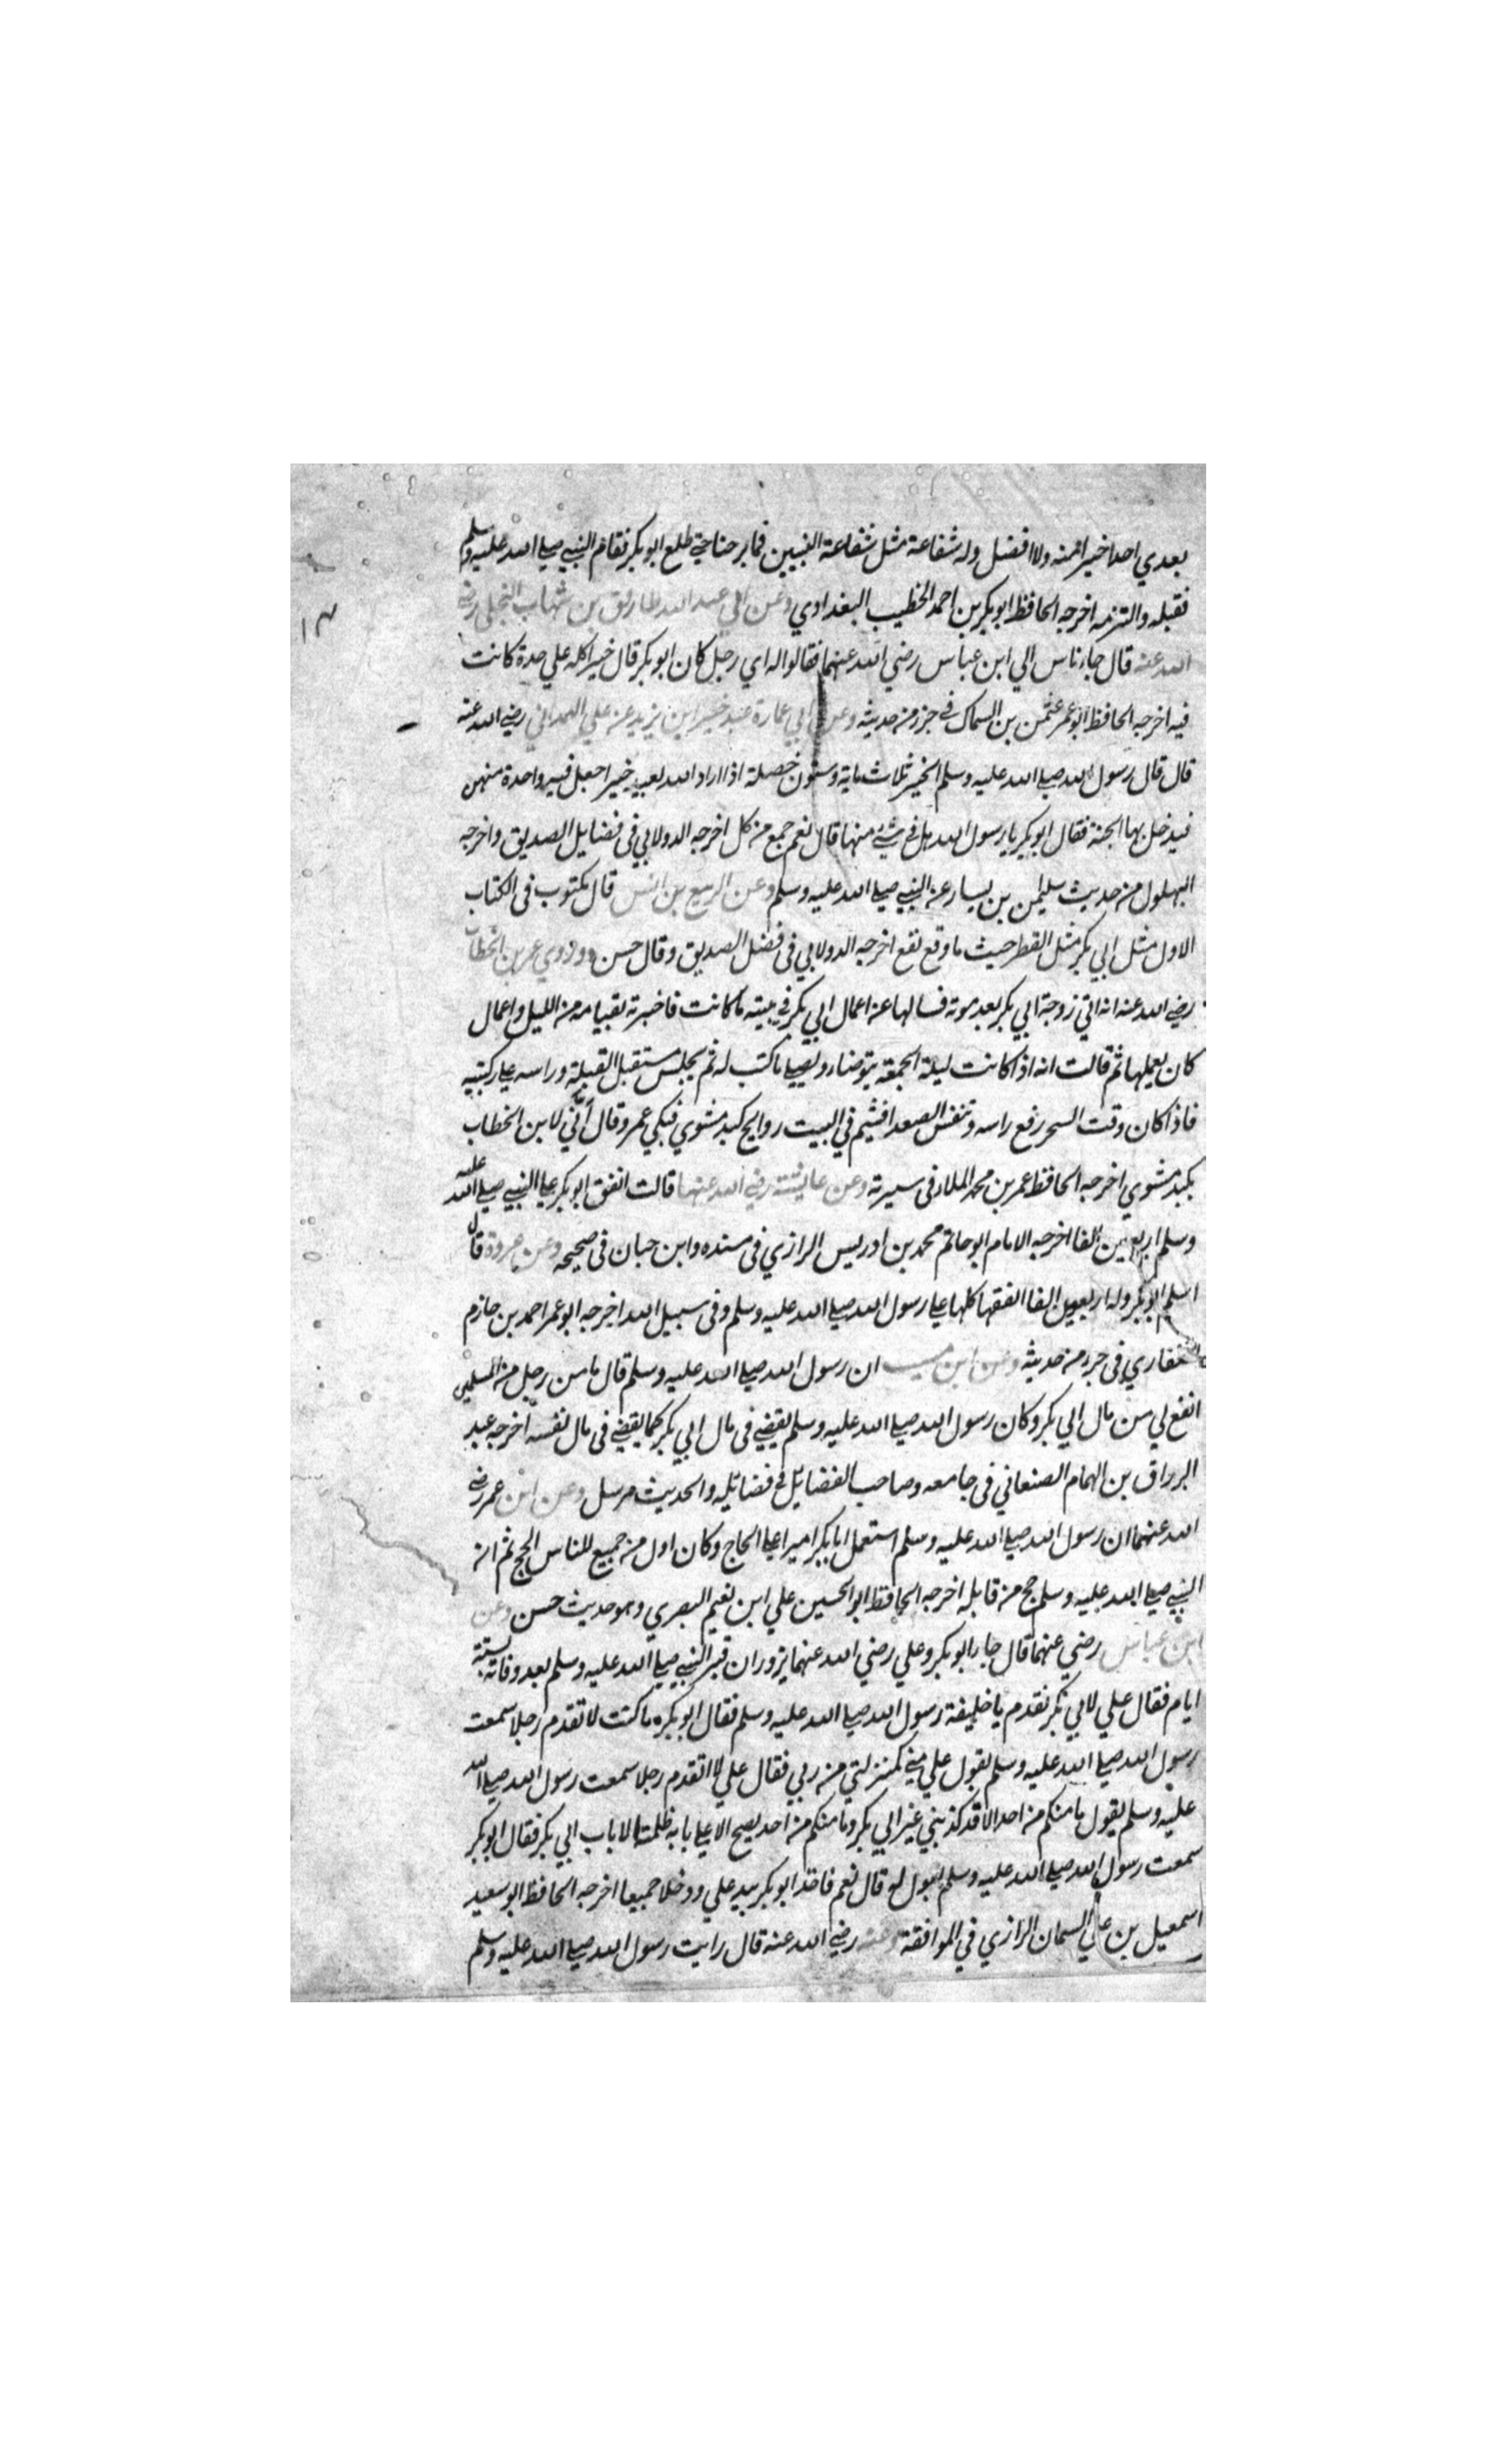 بعدي احدا خيرا منه ولا افضل وله شفاعة مثل شفاعة النبيين فما برحنا حتي طلع ابو بكر فقام النبي صلي الله عليه وسلم
فقبله والتزمه اخرجه الحافظ ابو بكر بن احمد الخطيب البغدادي وعن ابي عبد الله طارق بن شهاب البجلي رضي
الله عنه قال جاء ناس الي ابن عباس رضي الله عنهما فقالوا له اي رجل كان ابو بكر قال خير اكله علي حدة كانت
فيه اخرجه الحافظ ابو عمر عثمن بن السماك في جزء من حديثه وعن ابي عمارة عبد خير ابن يزيد عن علي الهمداني رضي الله عنه
قال قال رسول الله صلي الله عليه وسلم الخير ثلاث ماية وستون خصلة اذا اراد الله بعبد خيرا جعل فيه واحدة منهن
فيدخل بها الجنة فقال ابو بكر يا رسول الله هل في شئ منها قال نعم جمع من كل اخرجه الدولابي في فضايل الصديق واخرجه
البهلول من حديث سليمن بن يسار عن النبي صلي الله عليه وسلم وعن الربيع بن انس قال مكتوب في الكتاب
الاول مثل ابي بكر مثل القطر حيث ما وقع نفع اخرجه الدولابي في فضل الصديق وقال حسن وروي عمر بن الخطاب
رضي الله عنه انه اتي زوجة ابي بكر بعد موته فسالها عن اعمال ابي بكر في بيته ما كانت فاخبرته بقيامه من الليل واعمال
كان يعملها ثم قالت انه اذا كانت ليلة الجمعة يتوضاء ويصلي ما كتب له ثم يجلس مستقبل القبلة وراسه علي ركبتيه
فاذا كان وقت السحر رفع راسه وتنفس الصعدا فيشم في البيت روايح كبد مشوي فبكي عمر وقال أنّي لابن الخطاب
بكبد مشوي اخرجه الحافظ عمر بن محمد الملاء في سيرته وعن عايشة رضي الله عنها قالت انفق ابو بكر علي النبي صلي الله عليه
وسلم اربعين الفا اخرجه الامام ابو حاتم محمد بن ادريس الرازي في مسنده وابن حبان في صحيحه وعن عروة قال
اسلم ابو بكر وله اربعين الفا انفقها كلها علي رسول الله صلي الله عليه وسلم وفي سبيل الله اخرجه ابو عمر احمد بن حازم
الغفاري في جزء من حديثه وعن ابن مسيب ان رسول الله صلي الله عليه وسلم قال ما من رجل من المسلمين
انفع لي من مال ابي بكر وكان رسول الله صلي الله عليه وسلم يقضي في مال ابي بكر كما يقضي في مال نفسه اخرجه عبد
الرزاق بن الهمام الصنعاني في جامعه وصاحب الفضايل في فضايله والحديث مرسل وعن ابن عمر رضي
الله عنهما ان رسول الله صلي الله عليه وسلم استعمل ابا بكر اميرا علي الحاج وكان اول من جميع للناس الحج ثم ان
النبي صلي الله عليه وسلم حج من قابله اخرجه الحافظ ابو الحسين علي ابن نعيم البصري وهو حديث حسن وعن
ابن عباس رضي عنهما قال جاء ابو بكر وعلي رضي الله عنهما يزوران قبر النبي صلي الله عليه وسلم بعد وفاته بستة
ايام فقال علي لابي بكر تقدم يا خليفة رسول الله صلي الله عليه وسلم فقال ابو بكر ما كنت لاتقدم رجلا سمعت
رسول الله صلي الله عليه وسلم يقول علي مني كمنزلتي من ربي فقال علي لا اتقدم رجلا سمعت رسول الله صلي الله
عليه وسلم يقول ما منكم من احد الا قد كذبني غير ابي بكر وما منكم من احد يصبح الا علي بابه ظلمة الا باب ابي بكر فقال ابو بكر
سمعت رسول الله صلي الله عليه وسلم يقول له قال نعم فاخذ ابو بكر بيد علي ودخلا جميعا اخرجه الحافظ ابو سعيد
اسمعيل بن علي السمان الرازي في الموافقة وعنه رضي الله عنه قال رايت رسول الله صلي الله عليه وسلم